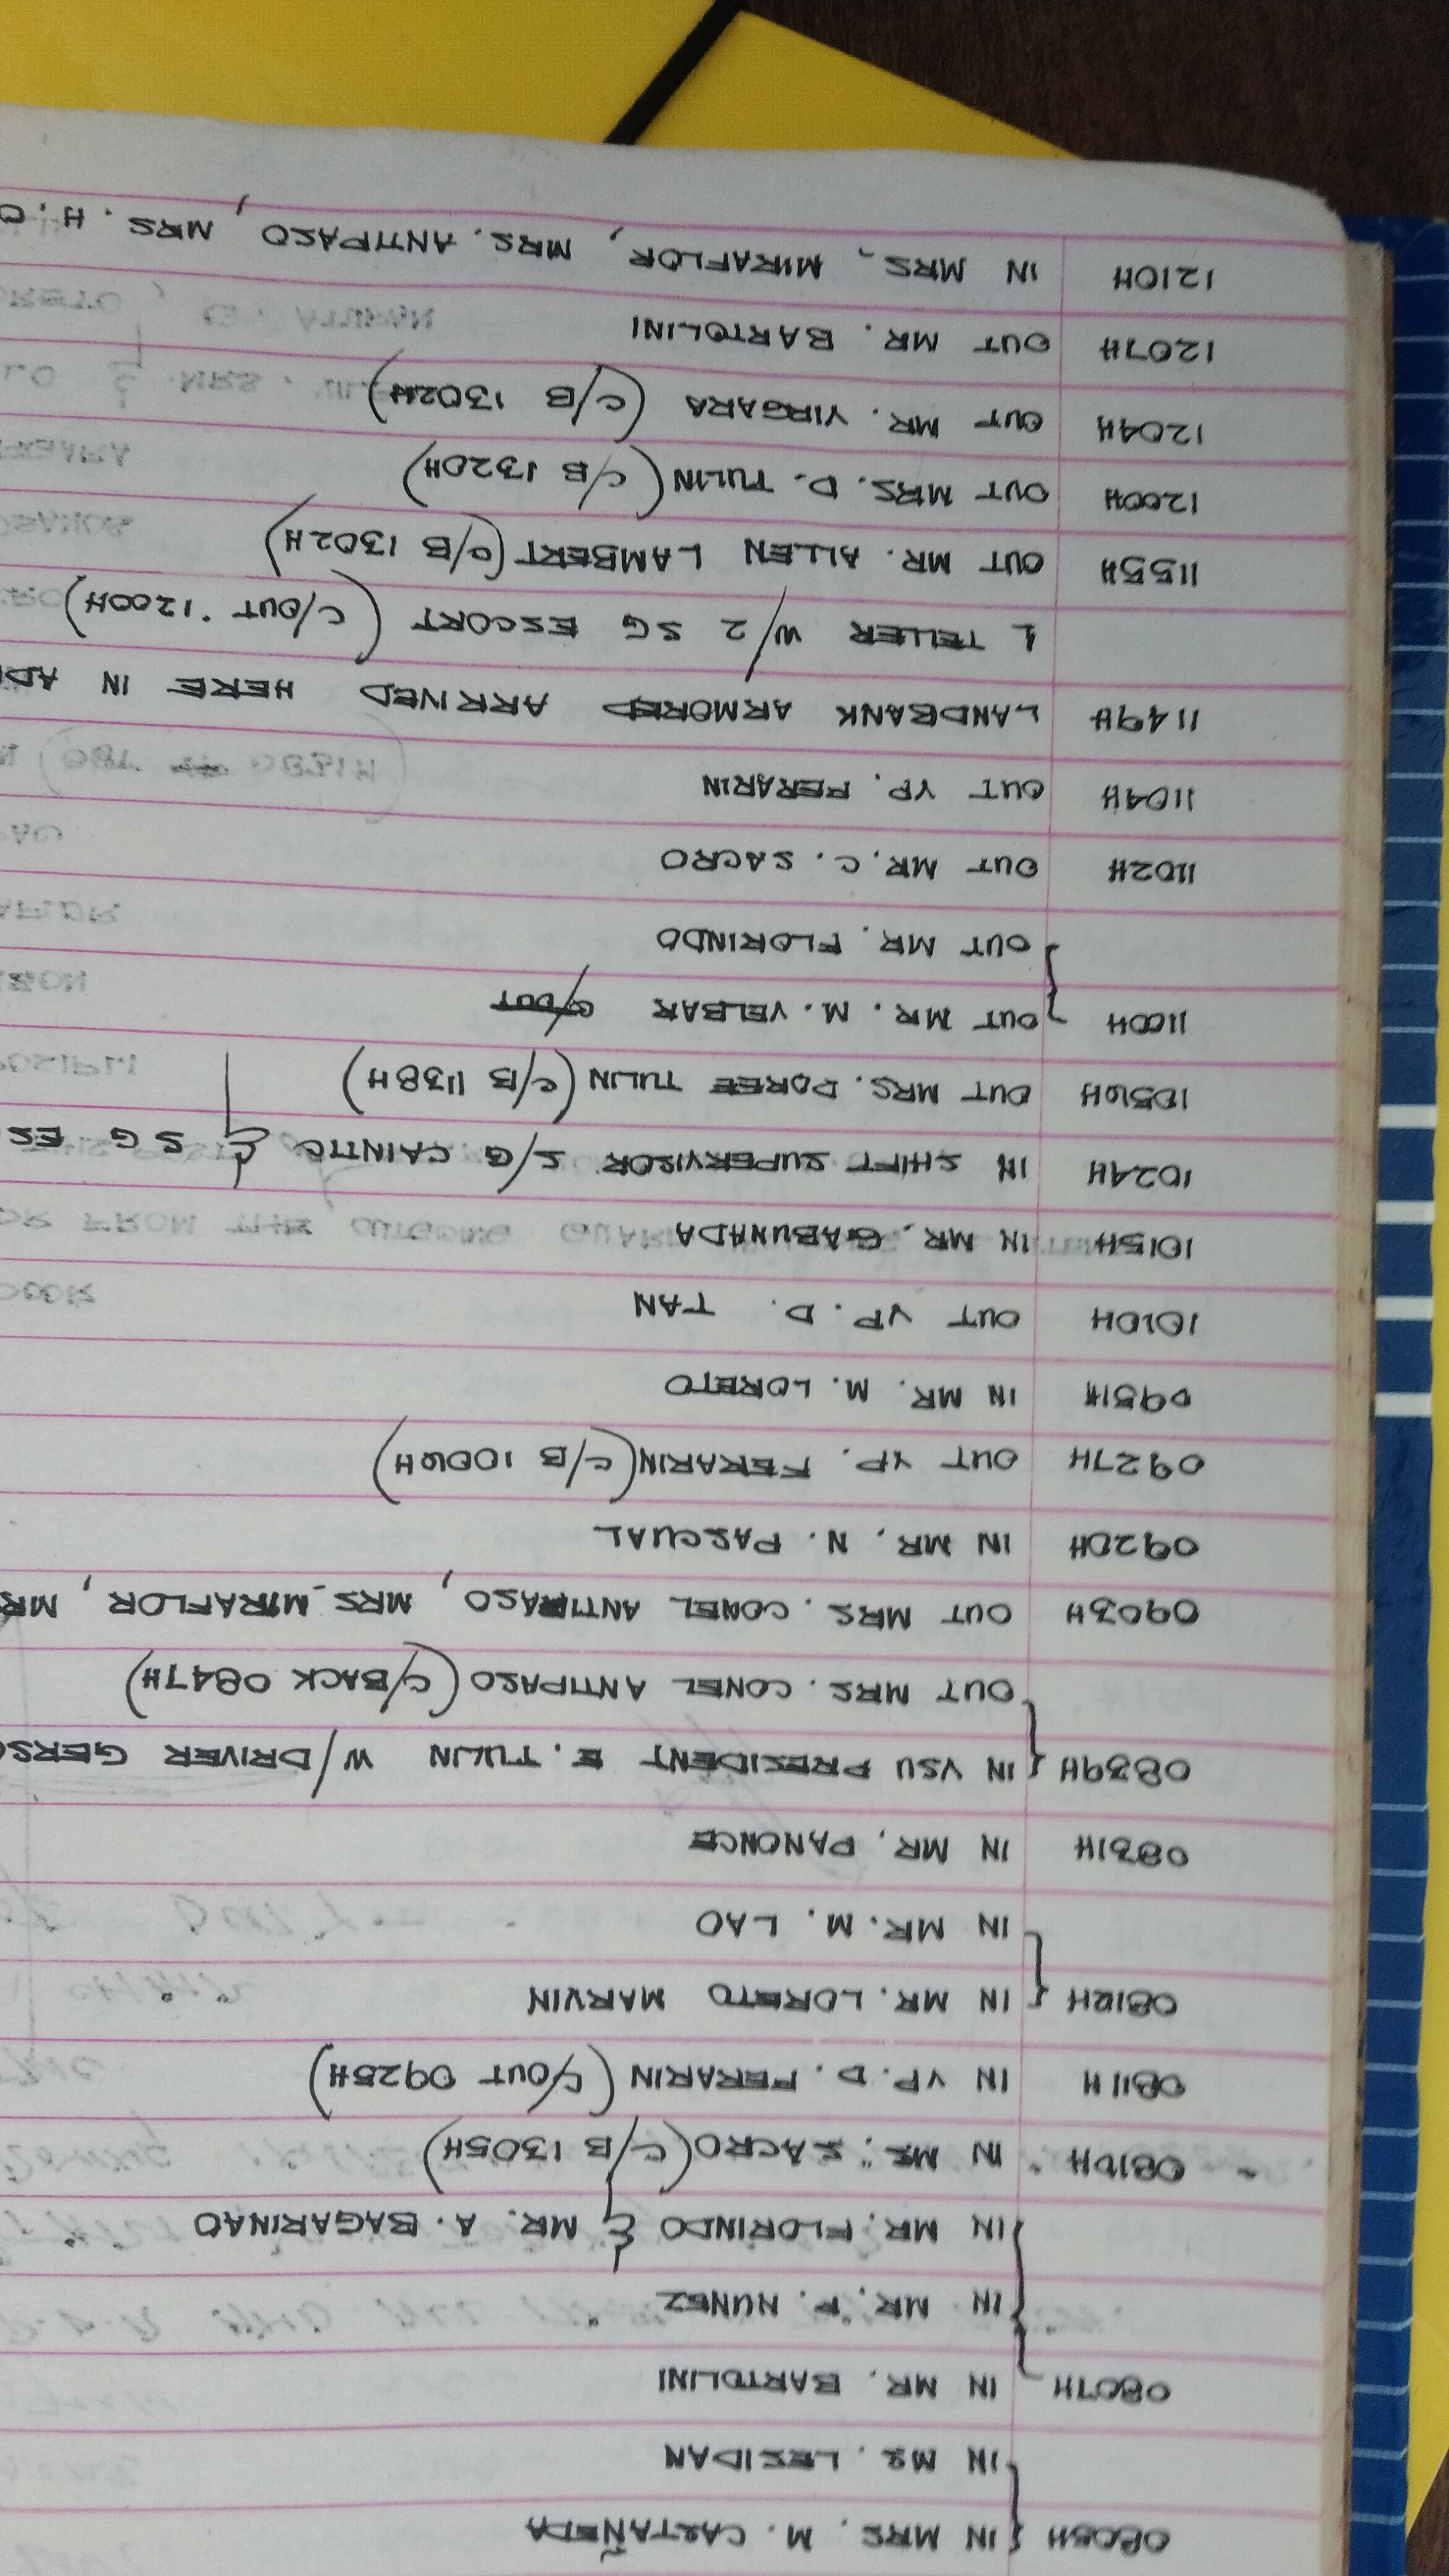 0805H IN MRS. M. CASTAÑEDA
IN MS. LESIDAN
0807H IN MR. BARTOLINI
IN MR. P. NUNEZ
IN MR. FLORINDO & MR. A. BAGARINAO
0810H IN MS. SACRO (C/B 1305H)
0811H IN VP. D. FERARIN (C/OUT 0925H)
0812H IN MR. LORETO MARVIN
IN MR. M. LAO
0831H IN MR. PANONCE
0839H IN VSU PRESIDENT E. TULIN W/DRIVER GERSO
OUT MRS. CONEL ANTIPASO (C/BACK 0847H)
0903H OUT MRS. CONEL ANTIPASO, MRS. MIRAFLOR, MR
0920H IN MR. N. PASCUAL
0927H OUT VP. FERARIN (C/B 1006H)
0951H IN MR. M. LORETO
1010H OUT VP. D. TAN
1015H IN MR. GABUNADA
1024H IN SHIFT SUPERVISOR S/G CAINTIC & SG ES
1056H OUT MRS. DOREE TULIN (C/B 1138H)
1100H OUT MR. M. VELBAR C/OUT
OUT MR. FLORINDO
1102H OUT MR. C. SACRO
1104H OUT VP. FERARIN
1149H LANDBANK ARMORED ARRIVED HERE IN AD
1 TELLER W/ 2 SG ESCORT (C/OUT 1200H)
1155H OUT MR. ALLEN LAMBERT (C/B 1302H)
1200H OUT MRS. D. TULIN (C/B 1320H)
1204H OUT MR. VIRGARA (C/B 1302H)
1207H OUT MR. BARTOLINI
1210H IN MRS. MIRAFLOR, MRS. ANTIPASO, MRS. H. O